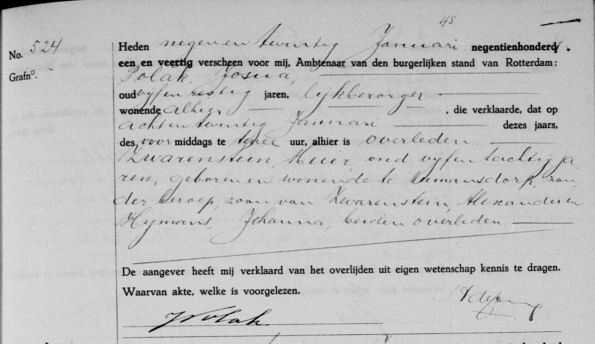 45
No. 524
Grafn°.
Heden negenentwintig Januari negentienhonderd
een en veertig verscheen voor mij, Ambtenaar van den burgerlijken stand van Rotterdam:
Polak, Josua,
oud vyfenzestig jaren, lykbezorger
wonende alhier, die verklaarde, dat op
achtentwintig Januari dezes jaars,
des voormiddags te twee uur, alhier is overleden
Zwarenstein, Meier, oud vyfentachtig ja
ren, geboren en wonende te Numansdorp, zon
der beroep, zoon van Zwarenstein, Alexander en
Hymans, Johanna, beiden overleden
De aangever heeft mij verklaard van het overlijden uit eigen wetenschap kennis te dragen.
Waarvan akte, welke is voorgelezen.
J Polak